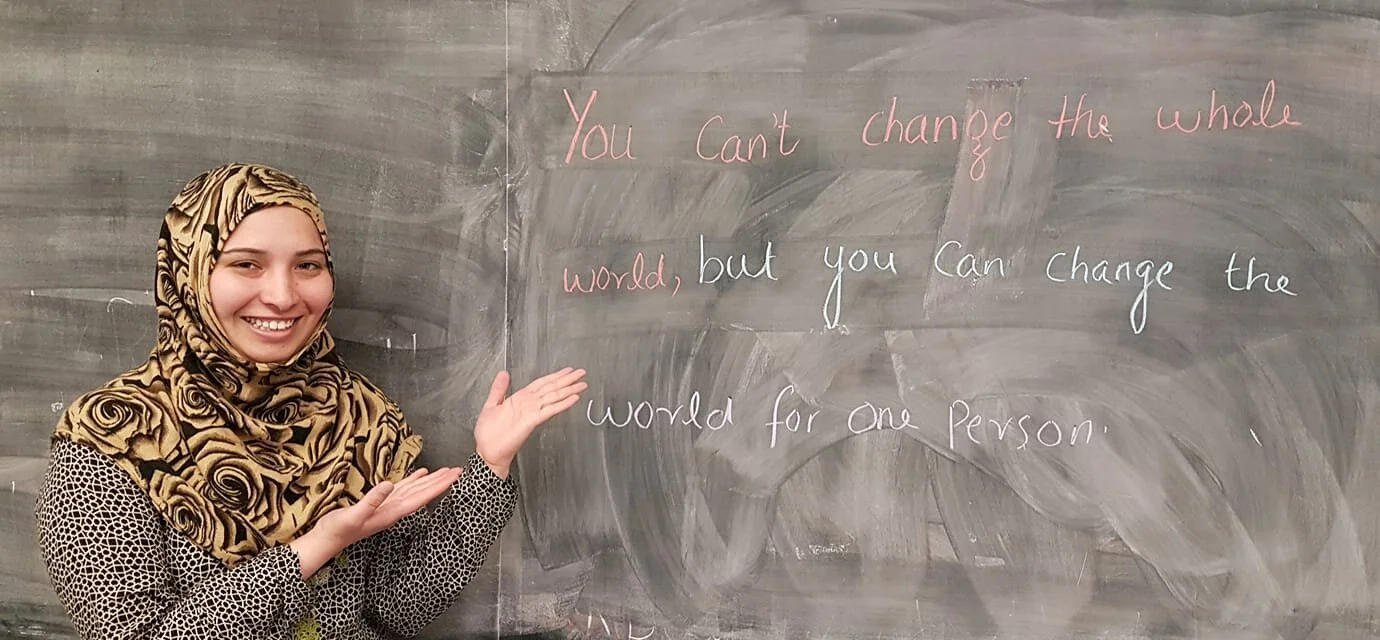 You Can't change the whole
world, but you Can change the
world for one Person.